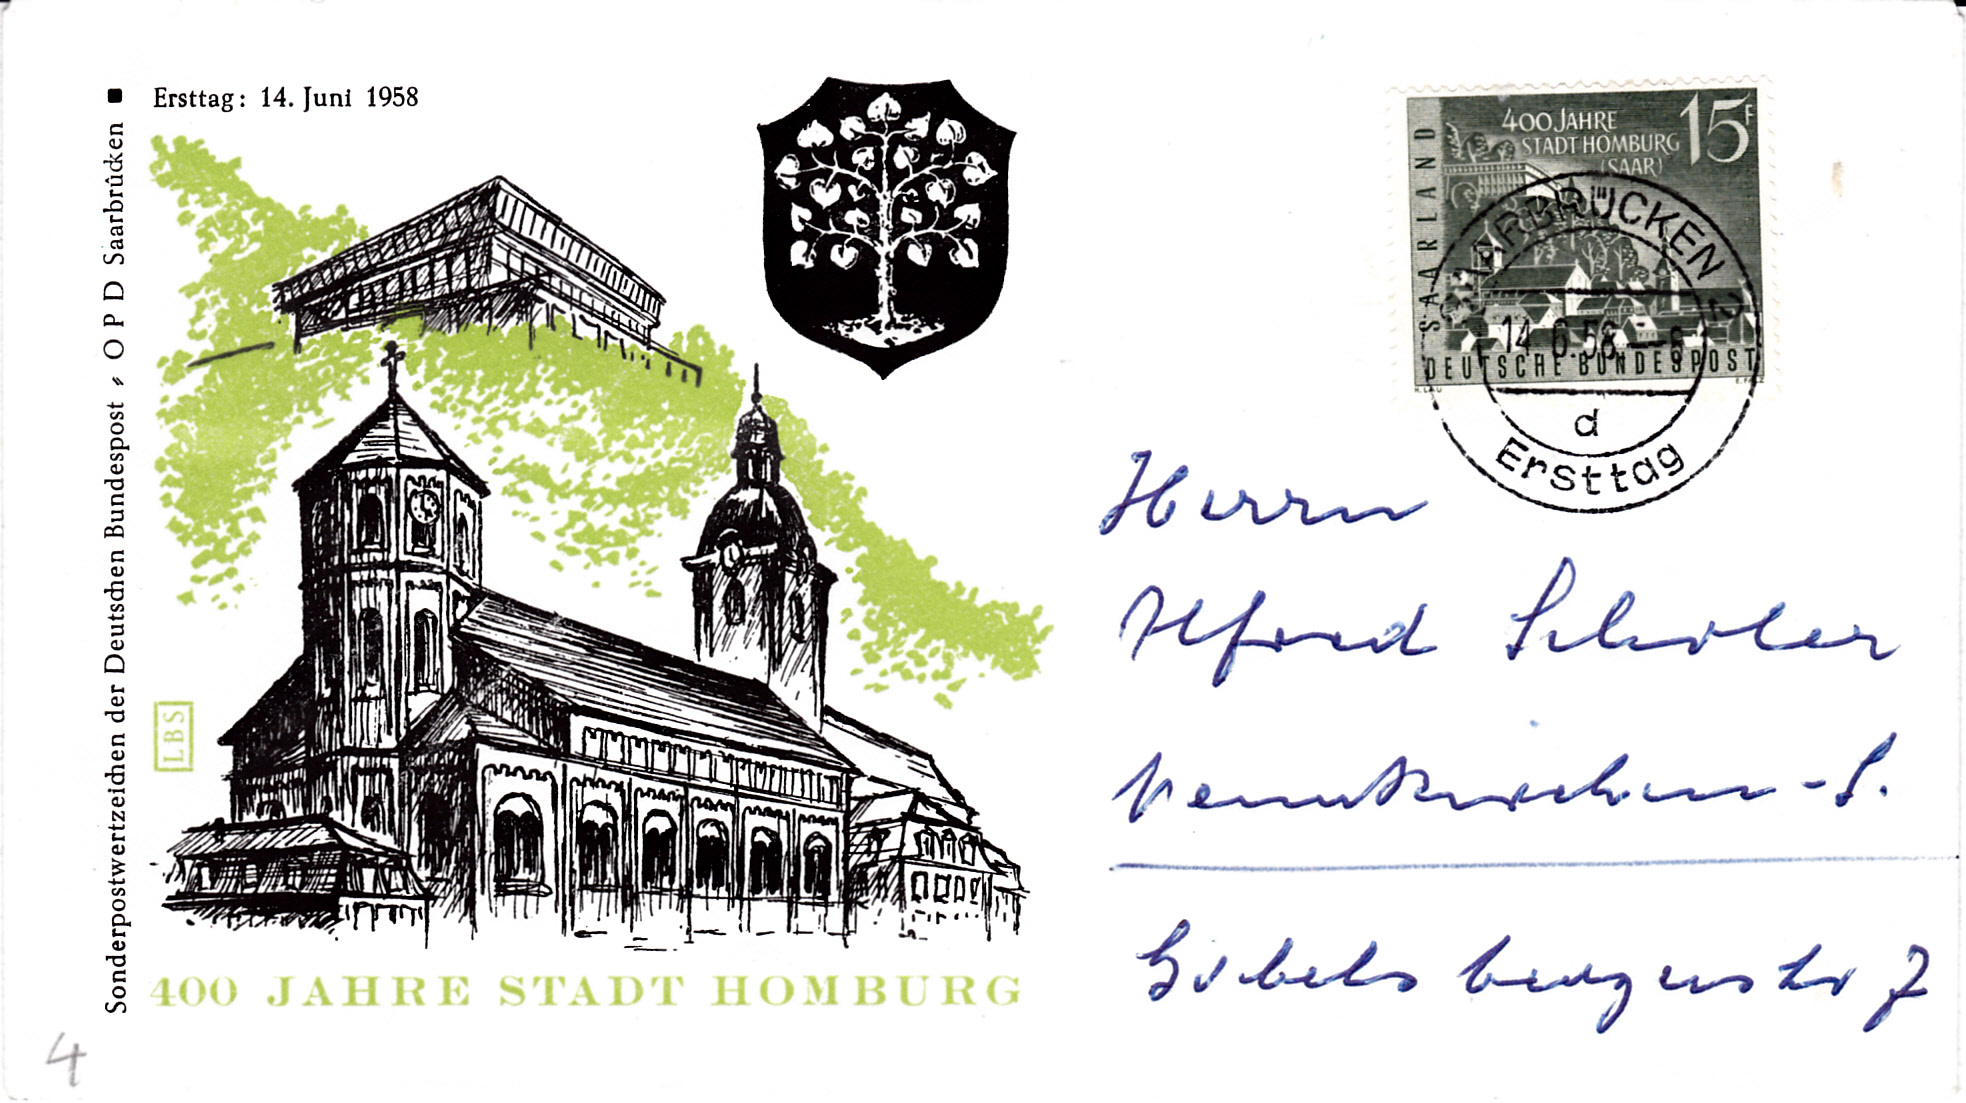 Ersttag: 14. Juni 1958
Sonderpostwertzeichen der Deutschen Bundespost OPD Saarbrücken
LBS
400 JAHRE STADT HOMBURG
4
400 JAHRE
STADT HOMBURG
(SAAR)
15F
SAARLAND
DEUTSCHE BUNDESPOST
H.LAU
SAARBRÜCKEN 2
14.6.58
d
Ersttag
Herrn
Alfred
Neunkirchen-S.
7